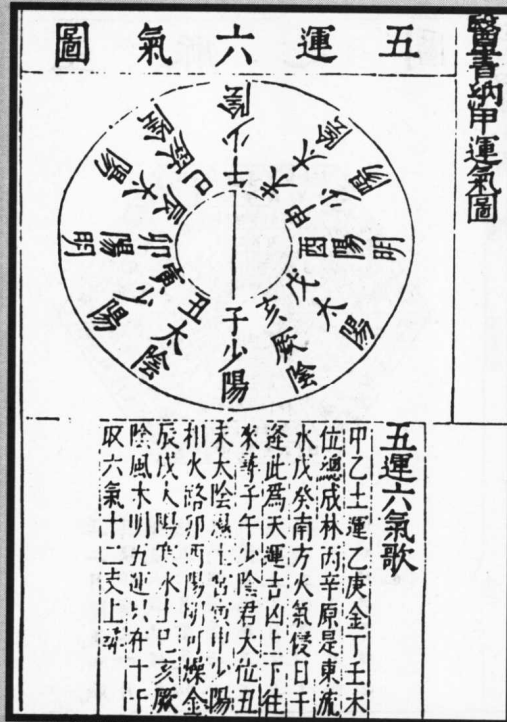 醫書納甲運氣圖
五運六氣圖
午少陰
未太陰
申少陽
酉陽明
戌太陽
亥厥陰
子少陽
丑太陰
寅少陽
卯陽明
辰太陽
巳厥陰
五運六氣歌
甲乙土運乙庚金丁壬木
位總成林丙辛原是東流
水戊癸南方火氣侵日干
逢此為天運吉凶上下往
來尋子午少陰君火位丑
未太陰濕土宮寅申少陽
相火路卯酉陽明可燥金
辰戌太陽寒水上巳亥厥
陰風木明五運只在十干
取六氣十二支上